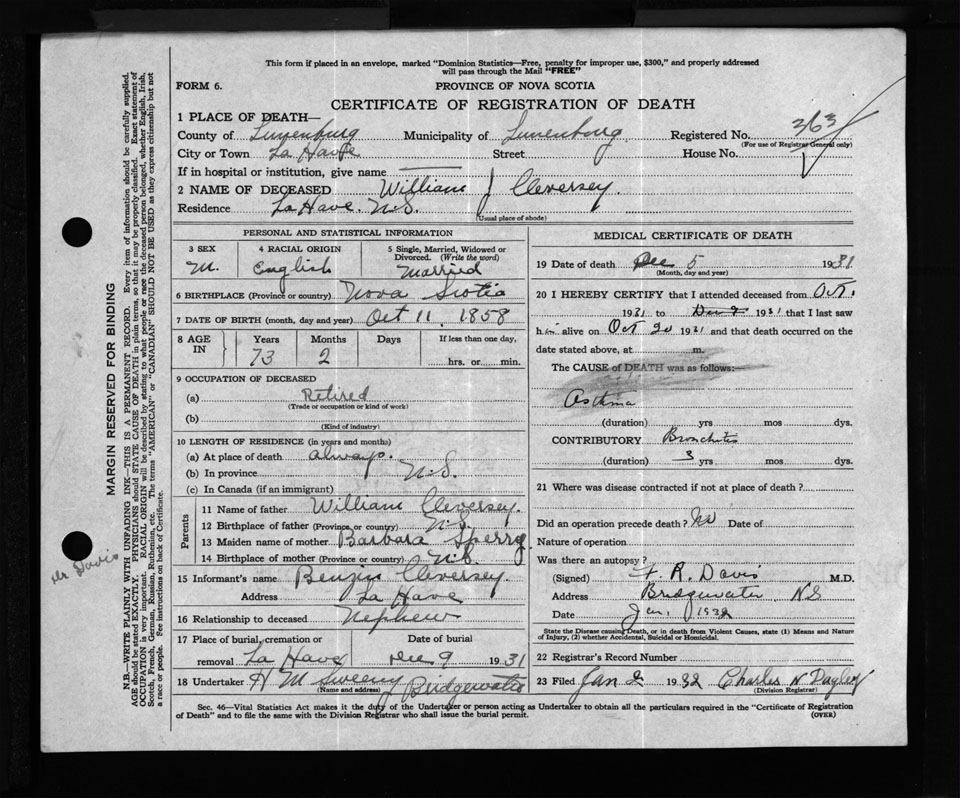 This form if placed in an envelope, marked "Dominion Statistics—Free, penalty for improper use, $300," and properly addressed
will pass through the Mail "FREE"
FORM 6.
PROVINCE OF NOVA SCOTIA
CERTIFICATE OF REGISTRATION OF DEATH
1 PLACE OF DEATH—
County of Lunenburg Municipality of Lunenburg Registered No. 363
(For use of Registrar General only)
City or Town La Have Street House No.
If in hospital or institution, give name
2 NAME OF DECEASED William J Cleversey.
Residence La Have. N.S.
(Usual place of abode)
PERSONAL AND STATISTICAL INFORMATION
3 SEX 4 RACIAL ORIGIN 5 Single, Married, Widowed or
Divorced. (Write the word)
M. English Married
6 BIRTHPLACE (Province or country) Nova Scotia
7 DATE OF BIRTH (month, day and year) Oct 11, 1858
8 AGE IN Years Months Days If less than one day,
73 2 hrs. or min.
9 OCCUPATION OF DECEASED
(a) Retired
(Trade or occupation or kind of work)
(b)
(Kind of industry)
10 LENGTH OF RESIDENCE (in years and months)
(a) At place of death always.
(b) In province N.S.
(c) In Canada (if an immigrant)
Parents
11 Name of father William Cleversey.
12 Birthplace of father (Province or country) N.S.
13 Maiden name of mother Barbara Sperry
14 Birthplace of mother (Province or country) N.S.
15 Informant's name Cleversey.
Address La Have
16 Relationship to deceased Nephew
17 Place of burial, cremation or Date of burial
removal La Have Dec 9 1931
18 Undertaker H M Sweeny Bridgewater
(Name and address)
MEDICAL CERTIFICATE OF DEATH
19 Date of death Dec 5 1931
(Month, day and year)
20 I HEREBY CERTIFY that I attended deceased from Oct.
1931 to 1931 that I last saw
him alive on Oct 20 1931 and that death occurred on the
date stated above, at m.
The CAUSE of DEATH was as follows:
Asthma
(duration) yrs mos dys.
CONTRIBUTORY Bronchitis
(duration) 3 yrs mos dys.
21 Where was disease contracted if not at place of death?
Did an operation precede death? No Date of
Nature of operation
Was there an autopsy?
(Signed) F. R. Davis M.D.
Address Bridgewater NS
Date Jan, 1932
State the Disease causing Death, or in death from Violent Causes, state (1) Means and Nature
of Injury, (2) whether Accidental, Suicidal or Homicidal.
22 Registrar's Record Number
23 Filed Jan 2 1932 Charles N
(Division Registrar)
Sec. 46—Vital Statistics Act makes it the duty of the Undertaker or person acting as Undertaker to obtain all the particulars required in the "Certificate of Registration
of Death" and to file the same with the Division Registrar who shall issue the burial permit.
(OVER)
MARGIN RESERVED FOR BINDING
N.B.—WRITE PLAINLY WITH UNFADING INK—THIS IS A PERMANENT RECORD. Every item of information should be carefully supplied.
AGE should be stated EXACTLY. PHYSICIANS should STATE CAUSE OF DEATH in plain terms, so that it may be properly classified. Exact statement of
OCCUPATION is very important. RACIAL ORIGIN will be described by stating to what people or race the deceased person belonged, whether English, Irish,
Scotch, French, German, Russian, Ruthenian, etc. The terms "AMERICAN" or "CANADIAN" SHOULD NOT BE USED as they express citizenship but not
a race or people. See instructions on back of Certificate.
Dr Davis